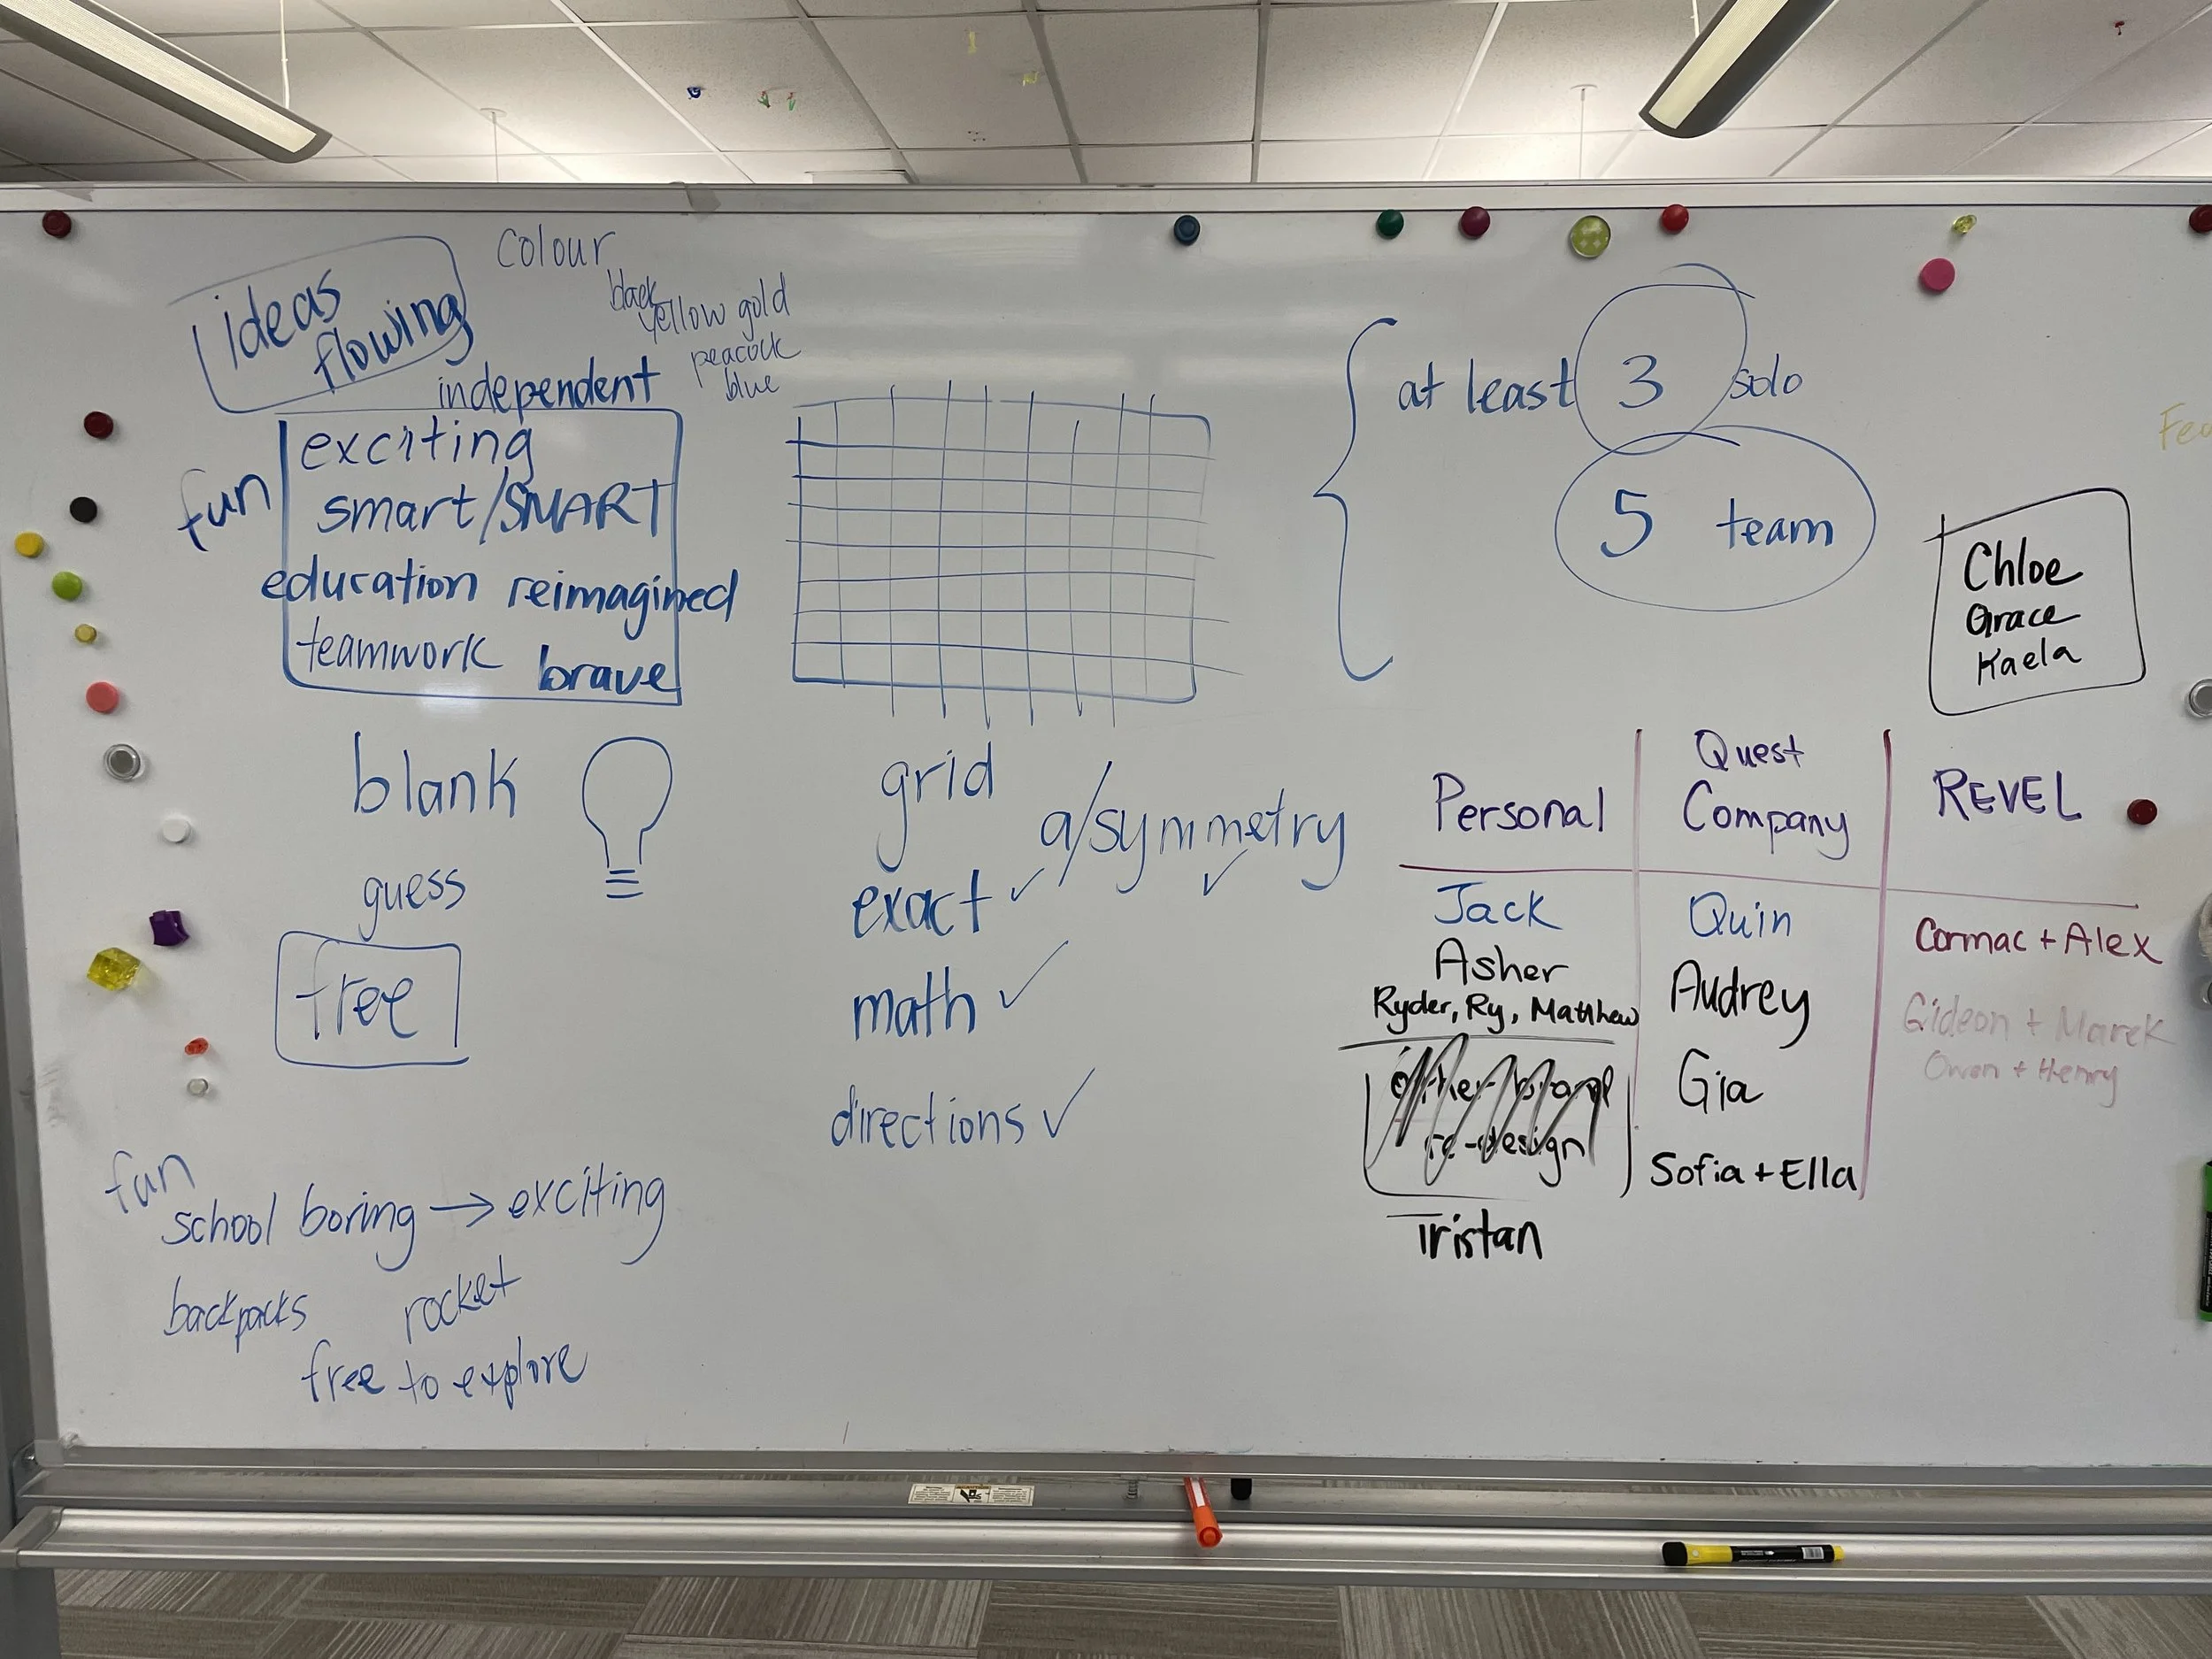 ideas
flowing
colour
black
yellow gold
peacock
blue
independent
fun
exciting
smart/SMART
education reimagined
teamwork brave
blank
guess
free
fun
school boring → exciting
backpacks rocket
free to explore
grid
a/symmetry ✓
exact ✓
math ✓
directions ✓
at least 3 solo
5 team
Chloe
Grace
Kaela
Personal
Jack
Asher
Ryder, Ry, Matthew
re-design
Tristan
Quest
Company
Quin
Audrey
Gia
Sofia + Ella
REVEL
Cormac + Alex
Gideon + Marek
Owen + Henry